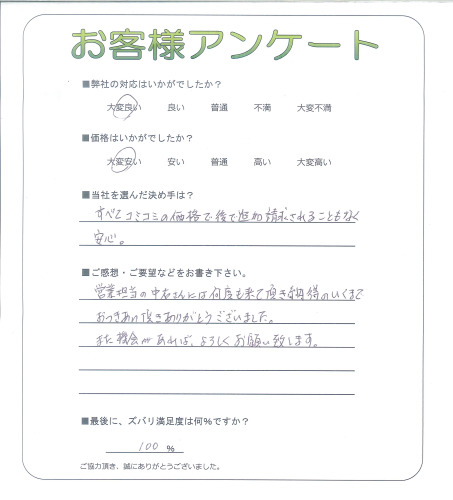 お客様アンケート
■弊社の対応はいかがでしたか？
大変良い 良い 普通 不満 大変不満
■価格はいかがでしたか？
大変安い 安い 普通 高い 大変高い
■当社を選んだ決め手は？
すべてコミコミの価格で後で追加請求されることもなく
安心。
■ご感想・ご要望などをお書き下さい。
営業担当の中右さんには何度も来て頂き納得のいくまで
おつきあい頂きありがとうございました。
また機会があれば、よろしくお願い致します。
■最後に、ズバリ満足度は何％ですか？
100 ％
ご協力頂き、誠にありがとうございました。